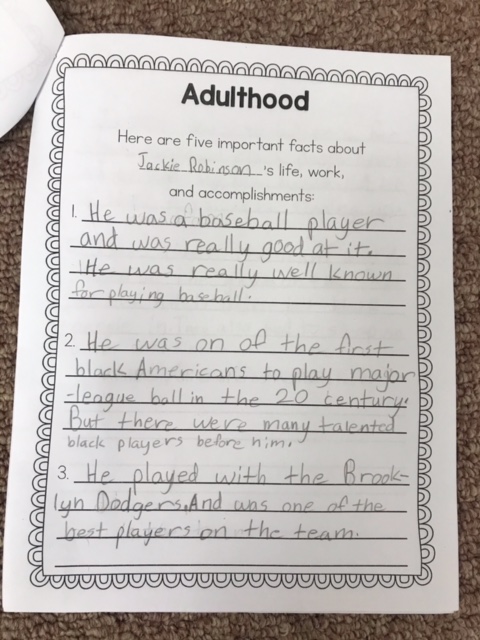 Adulthood
Here are five important facts about
Jackie Robinson's life, work,
and accomplishments:
1. He was a baseball player
and was really good at it.
He was really well known
for playing baseball.
2. He was on of the first
black Americans to play major
-league ball in the 20 century.
But there were many talented
black players before him.
3. He played with the Brook-
lyn Dodgers, And was one of the
best players on the team.